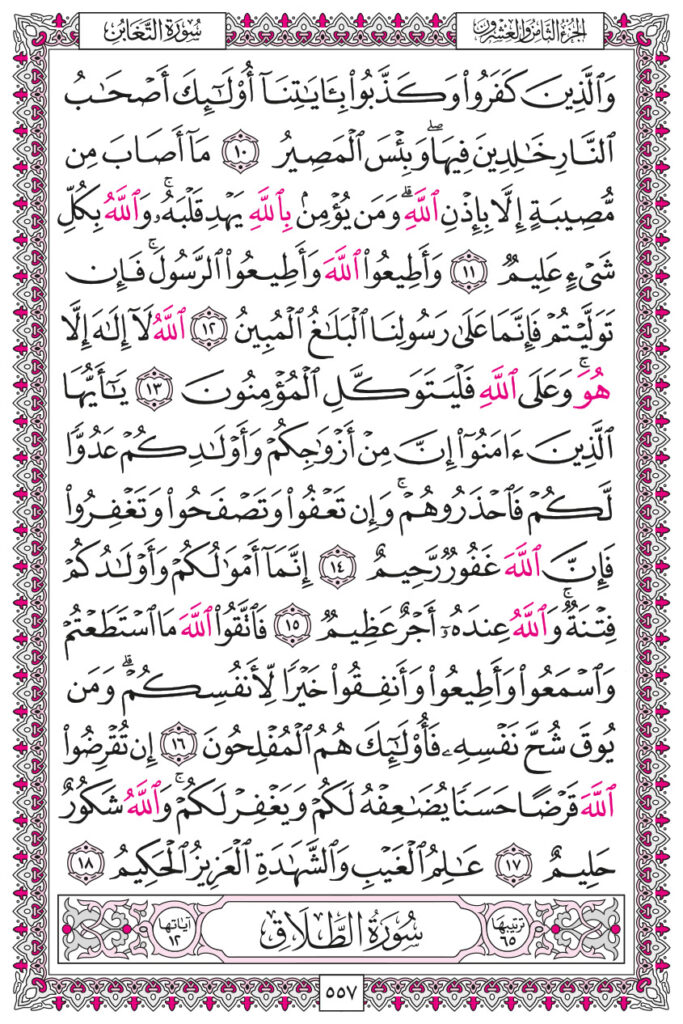 سُورَةُ التَّغَابُنِ
الجُزْءُ الثَّامِنُ وَالعِشْرُونَ
وَٱلَّذِينَ كَفَرُواْ وَكَذَّبُواْ بِـَٔايَٰتِنَآ أُوْلَٰٓئِكَ أَصْحَٰبُ
ٱلنَّارِ خَٰلِدِينَ فِيهَاۖ وَبِئْسَ ٱلْمَصِيرُ ١٠ مَآ أَصَابَ مِن
مُّصِيبَةٍ إِلَّا بِإِذْنِ ٱللَّهِۗ وَمَن يُؤْمِنۢ بِٱللَّهِ يَهْدِ قَلْبَهُۥۚ وَٱللَّهُ بِكُلِّ
شَىْءٍ عَلِيمٌ ١١ وَأَطِيعُواْ ٱللَّهَ وَأَطِيعُواْ ٱلرَّسُولَۚ فَإِن
تَوَلَّيْتُمْ فَإِنَّمَا عَلَىٰ رَسُولِنَا ٱلْبَلَٰغُ ٱلْمُبِينُ ١٢ ٱللَّهُ لَآ إِلَٰهَ إِلَّا
هُوَۚ وَعَلَى ٱللَّهِ فَلْيَتَوَكَّلِ ٱلْمُؤْمِنُونَ ١٣ يَٰٓأَيُّهَا
ٱلَّذِينَ ءَامَنُوٓاْ إِنَّ مِنْ أَزْوَٰجِكُمْ وَأَوْلَٰدِكُمْ عَدُوًّا
لَّكُمْ فَٱحْذَرُوهُمْۚ وَإِن تَعْفُواْ وَتَصْفَحُواْ وَتَغْفِرُواْ
فَإِنَّ ٱللَّهَ غَفُورٌ رَّحِيمٌ ١٤ إِنَّمَآ أَمْوَٰلُكُمْ وَأَوْلَٰدُكُمْ
فِتْنَةٌۚ وَٱللَّهُ عِندَهُۥٓ أَجْرٌ عَظِيمٌ ١٥ فَٱتَّقُواْ ٱللَّهَ مَا ٱسْتَطَعْتُمْ
وَٱسْمَعُواْ وَأَطِيعُواْ وَأَنفِقُواْ خَيْرًا لِّأَنفُسِكُمْۗ وَمَن
يُوقَ شُحَّ نَفْسِهِۦ فَأُوْلَٰٓئِكَ هُمُ ٱلْمُفْلِحُونَ ١٦ إِن تُقْرِضُواْ
ٱللَّهَ قَرْضًا حَسَنًا يُضَٰعِفْهُ لَكُمْ وَيَغْفِرْ لَكُمْۚ وَٱللَّهُ شَكُورٌ
حَلِيمٌ ١٧ عَٰلِمُ ٱلْغَيْبِ وَٱلشَّهَٰدَةِ ٱلْعَزِيزُ ٱلْحَكِيمُ ١٨
ترتيبها ٦٥ سُورَةُ الطَّلَاقِ آياتها ١٢
٥٥٧